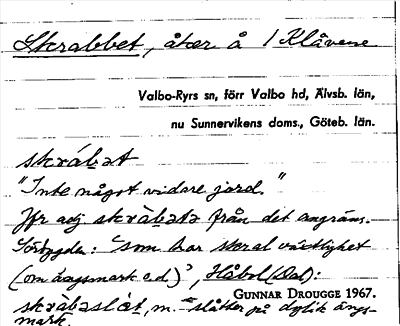 Skrabbet, åker å 1 Klåvene
Valbo-Ryrs sn, förr Valbo hd, Älvsb. län,
nu Sunnervikens doms., Göteb. län.
skràbət
"Inte något vidare jord."
Jfr adj skràbətə från det angräns.
Sörbygden: "som har skral växtlighet
(om ängsmark e.d.)", Håbol (Dal):
GUNNAR DROUGGE 1967.
skràbəslåt, m. = slåtter på dylik ängs-
mark.